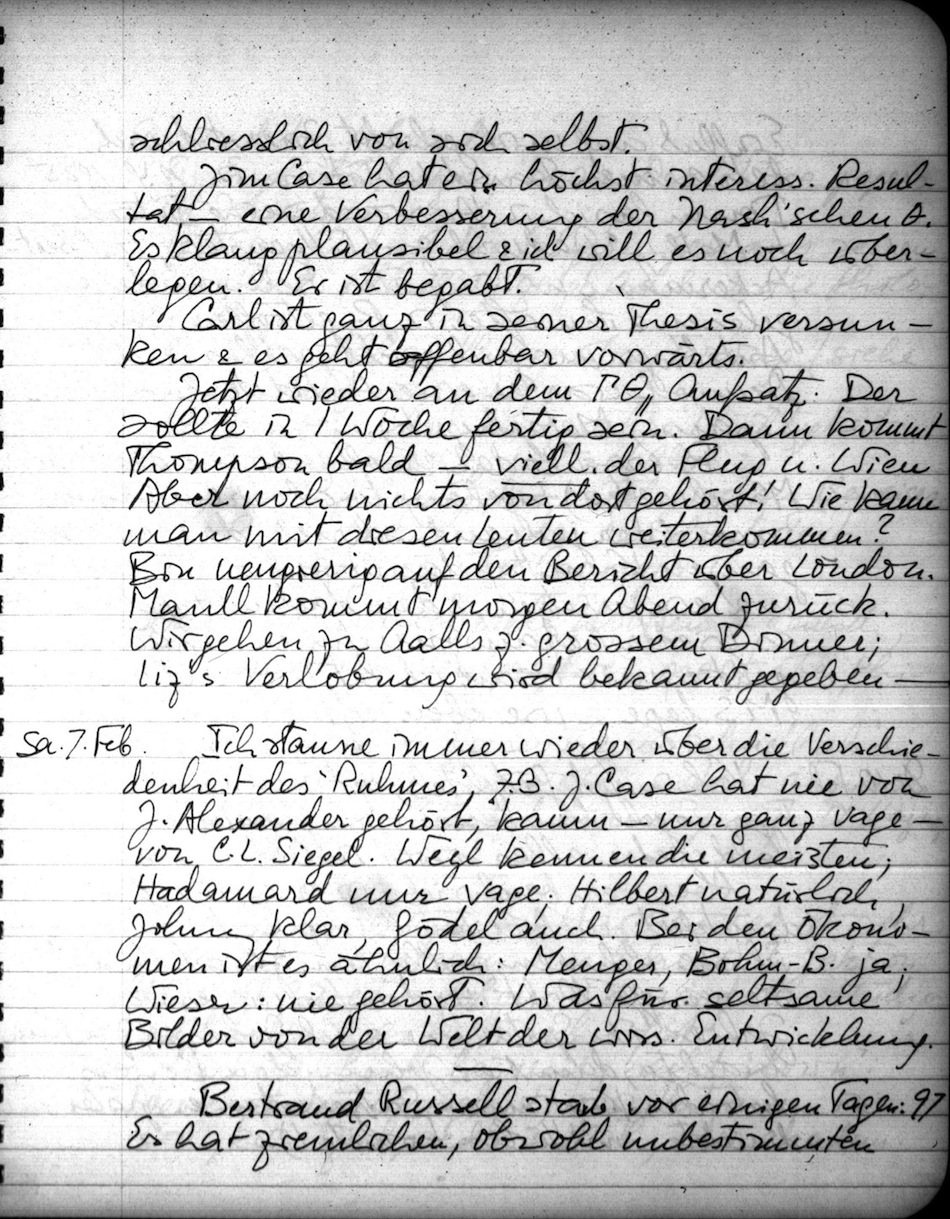 schliesslich von sich selbst.
Jim Case hat ein höchst interess. Resul-
tat – eine Verbesserung der Nash'schen θ.
Es klang plausibel & ich will es noch über-
legen. Er ist begabt.
Carl ist ganz in seiner Thesis versun-
ken & es geht offenbar vorwärts.
Jetzt wieder an dem Aufsatz. Der
sollte in 1 Woche fertig sein. Dann kommt
Thompson bald – viell. der Flug n. Wien
Aber noch nichts von dort gehört! Wie kann
man mit diesen Leuten weiterkommen?
Bin neugierig auf den Bericht über London.
Mandl kommt morgen Abend zurück.
Wir gehen zu Aalls z. grossem Dinner;
Liz's Verlobung wird bekannt gegeben —
Sa. 7. Feb. Ich staune immer wieder über die Verschie-
denheit des 'Ruhmes', z.B. J. Case hat nie von
J. Alexander gehört, kaum – nur ganz vage –
von C.L. Siegel. Weyl kennen die meisten;
Hadamard nur vage; Hilbert natürlich,
Johnny klar, Gödel auch. Bei den Ökono-
men ist es ähnlich: Menger, Böhm-B. ja;
Wieser: nie gehört. Was für seltsame
Bilder von der Welt der wiss. Entwicklung.
Bertrand Russell starb vor einigen Tagen: 97
Er hat ziemlichen, obwohl unbestimmten